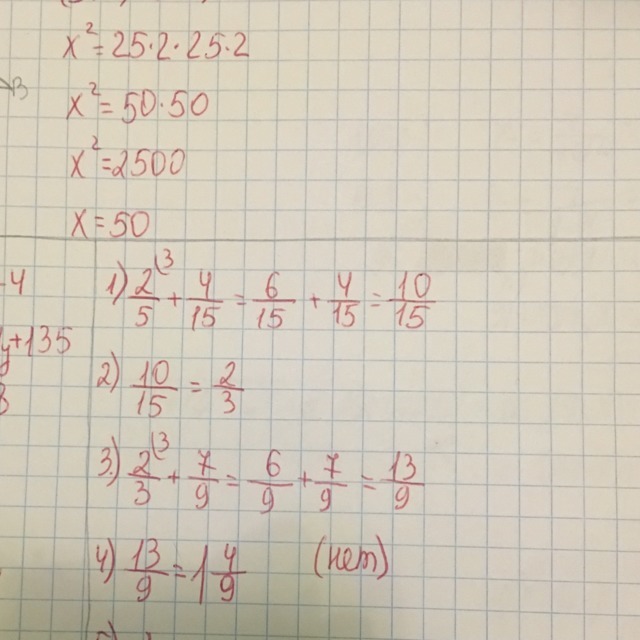 x²=25·2·25·2
x²=50·50
x²=2500
x=50
-4
y+135
1) 2/5 ⁽³ + 4/15 = 6/15 + 4/15 = 10/15
2) 10/15 = 2/3
3) 2/3 ⁽³ + 7/9 = 6/9 + 7/9 = 13/9
4) 13/9 = 1 4/9 (нет)